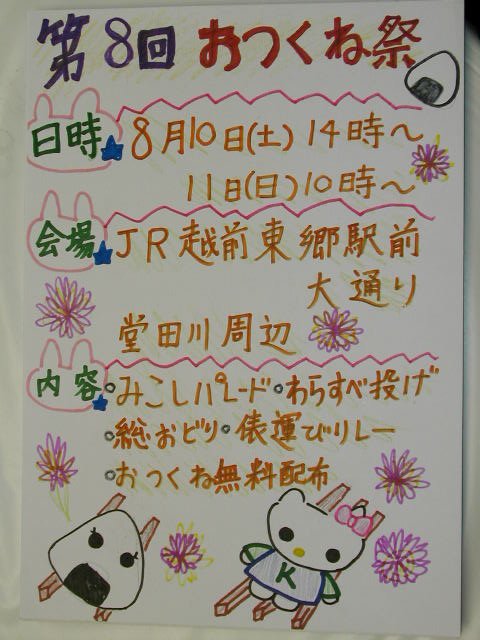 第8回 おつくね祭
日時 8月10日(土) 14時～
11日(日) 10時～
会場 JR越前東郷駅前
大通り
堂田川周辺
内容 ・みこしパレード・わらすべ投げ
・総おどり・俵運びリレー
・おつくね無料配布
K